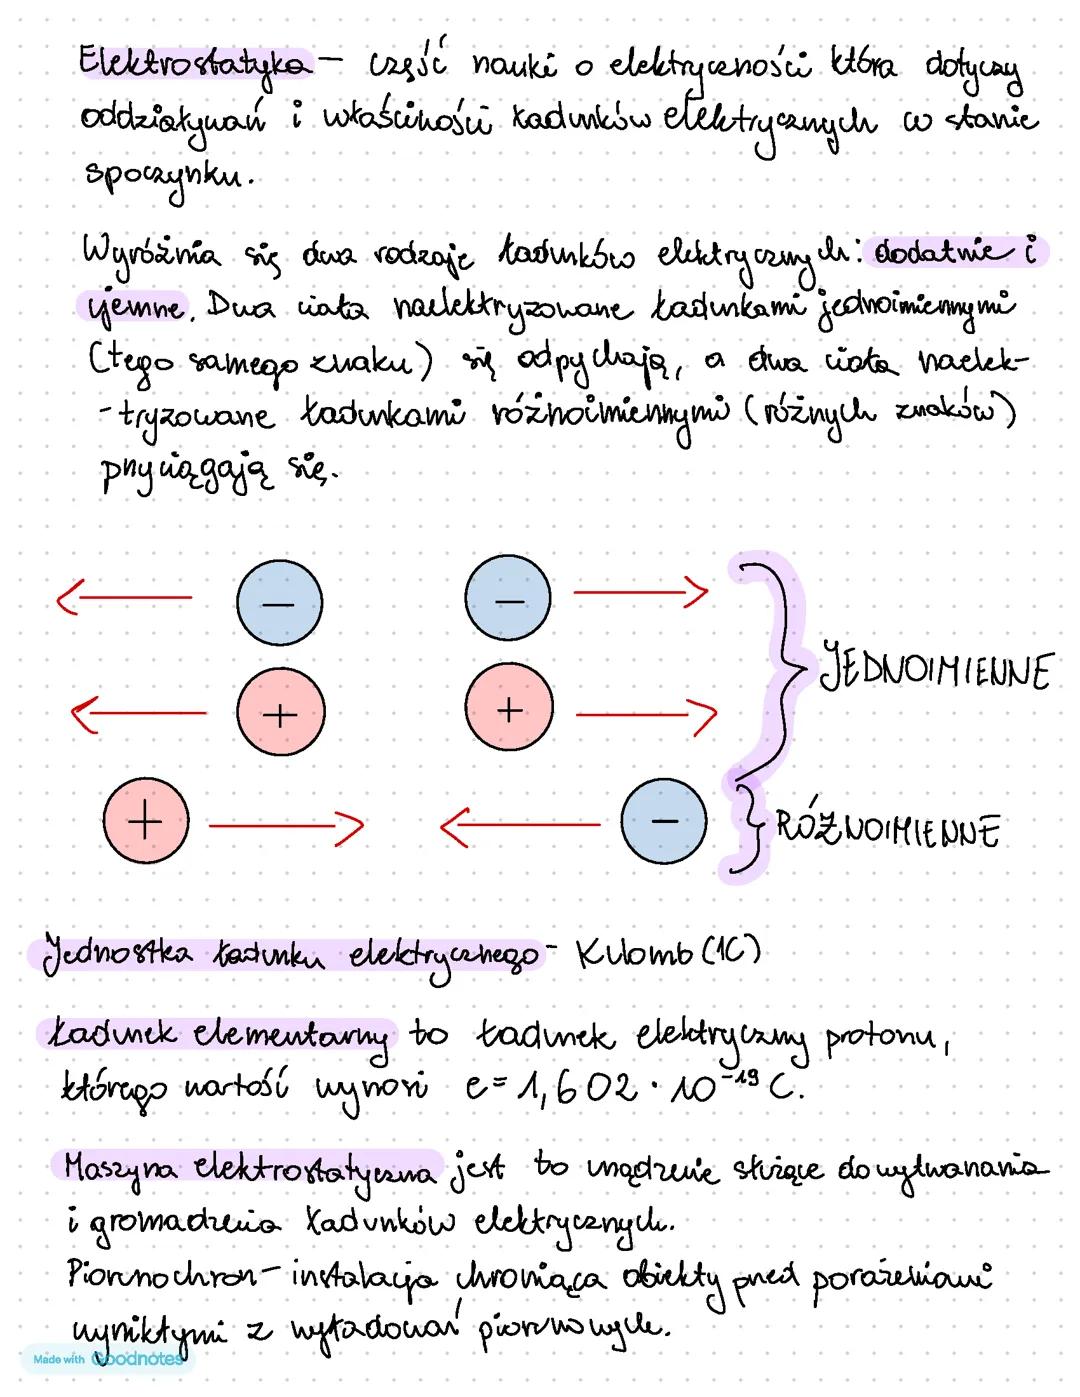 Elektrostatyka - część nauki o elektryczności która dotyczy
oddziaływań i właściwości ładunków elektrycznych w stanie
spoczynku.
Wyróżnia się dwa rodzaje ładunków elektrycznych: dodatnie i
ujemne. Dwa ciała naelektryzowane ładunkami jednoimiennymi
(tego samego znaku) się odpychają, a dwa ciała naelek-
-tryzowane ładunkami różnoimiennymi (różnych znaków)
przyciągają się.
− −
+ +
JEDNOIMIENNE
+ −
RÓŻNOIMIENNE
Jednostka ładunku elektrycznego - Kulomb (1C)
Ładunek elementarny to ładunek elektryczny protonu,
którego wartość wynosi e = 1,602 · 10⁻¹⁹ C.
Maszyna elektrostatyczna jest to urządzenie służące do wytwarzania
i gromadzenia ładunków elektrycznych.
Piorunochron - instalacja chroniąca obiekty przed porażeniami
wynikłymi z wyładowań piorunowych.
Made with Goodnotes